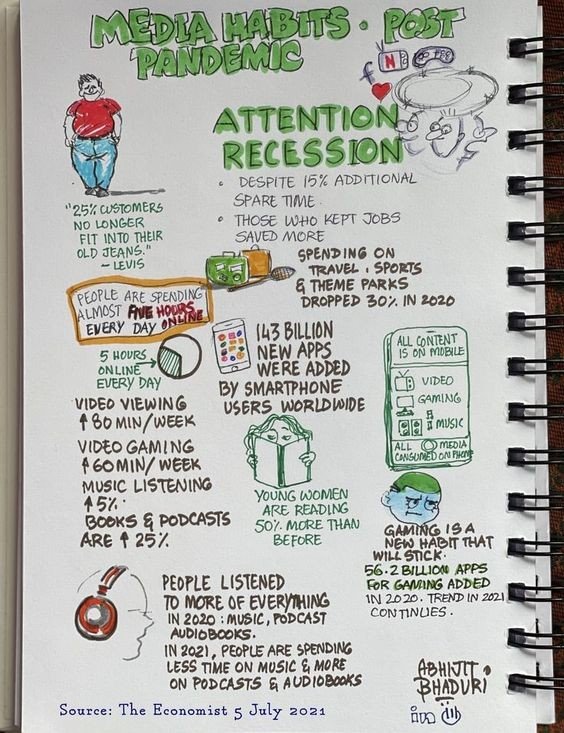 MEDIA HABITS · POST
PANDEMIC
f
N
ATTENTION
RECESSION
• DESPITE 15% ADDITIONAL
SPARE TIME.
• THOSE WHO KEPT JOBS
SAVED MORE
"25% CUSTOMERS
NO LONGER
FIT INTO THEIR
OLD JEANS."
- LEVIS
SPENDING ON
TRAVEL, SPORTS
& THEME PARKS
DROPPED 30% IN 2020
PEOPLE ARE SPENDING
ALMOST FIVE HOURS
EVERY DAY ONLINE
5 HOURS
ONLINE →
EVERY DAY
143 BILLION
NEW APPS
WERE ADDED
BY SMARTPHONE
USERS WORLDWIDE
ALL CONTENT
IS ON MOBILE
VIDEO
GAMING
MUSIC
ALL MEDIA
CONSUMED ON PHONE
VIDEO VIEWING
↑ 80 MIN/WEEK
VIDEO GAMING
↑ 60 MIN/WEEK
MUSIC LISTENING
↑ 5%
BOOKS & PODCASTS
ARE ↑ 25%
YOUNG WOMEN
ARE READING
50% MORE THAN
BEFORE
GAMING IS A
NEW HABIT THAT
WILL STICK.
56.2 BILLION APPS
FOR GAMING ADDED
IN 2020. TREND IN 2021
CONTINUES.
PEOPLE LISTENED
TO MORE OF EVERYTHING
IN 2020: MUSIC, PODCAST
AUDIOBOOKS.
IN 2021, PEOPLE ARE SPENDING
LESS TIME ON MUSIC & MORE
ON PODCASTS & AUDIOBOOKS
ABHIJIT
BHADURI
in
Source: The Economist 5 July 2021